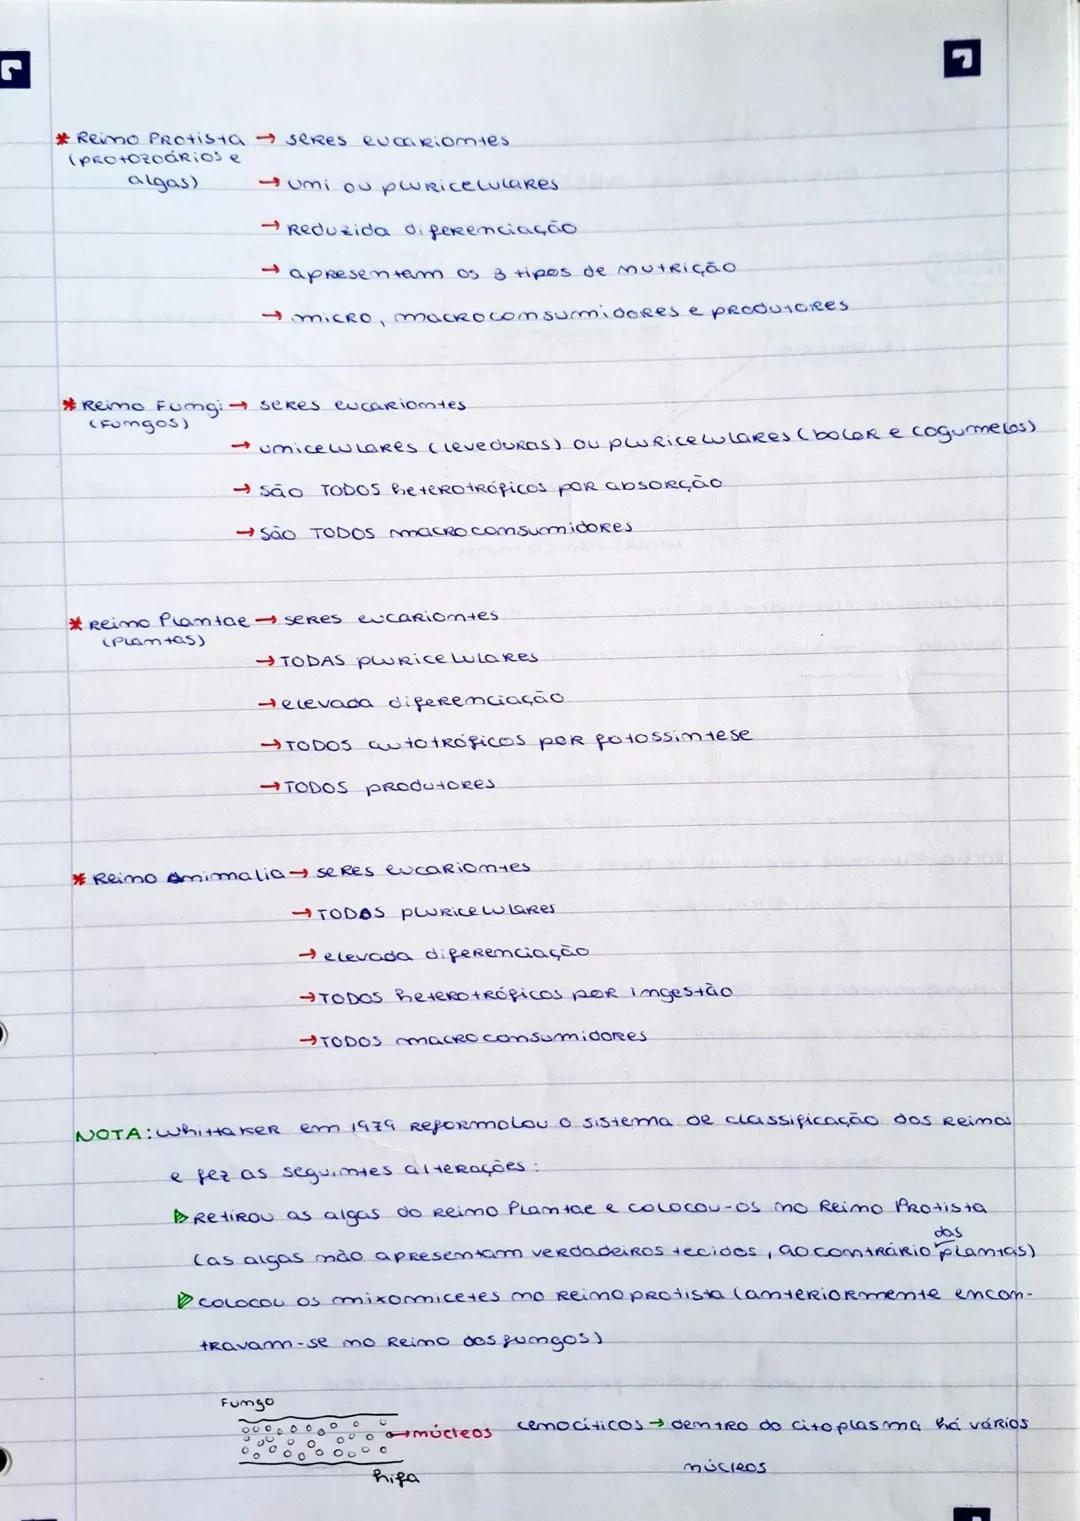 * Reino Protista → seres eucariontes
(protozoários e
algas)
→ uni ou pluricelulares
→ Reduzida diferenciação
→ apresentam os 3 tipos de nutrição
→ micro, macroconsumidores e produtores
* Reino Fungi → seres eucariontes
(Fungos)
→ unicelulares (leveduras) ou pluricelulares (bolor e cogumelos)
→ São TODOS heterotróficos por absorção
→ São TODOS macroconsumidores
* Reino Plantae → seres eucariontes
(Plantas)
→ TODAS pluricelulares
→ elevada diferenciação
→ TODOS autotróficos por fotossíntese
→ TODOS produtores
* Reino Animalia → seres eucariontes
→ TODOS pluricelulares
→ elevada diferenciação
→ TODOS heterotróficos por ingestão
→ TODOS macroconsumidores
NOTA: Whittaker em 1979 Reformolou o sistema de classificação dos Reinos
e fez as seguintes alterações:
▷ Retirou as algas do Reino Plantae e colocou-os no Reino Protista
(as algas não apresentam verdadeiros tecidos, ao contrário das plantas)
▷ colocou os mixomicetes no Reino protista (anteriormente encon-
travam-se no Reino dos fungos)
Fungo
→ núcleos
cenocíticos → dentro do citoplasma há vários
núcleos
hifa